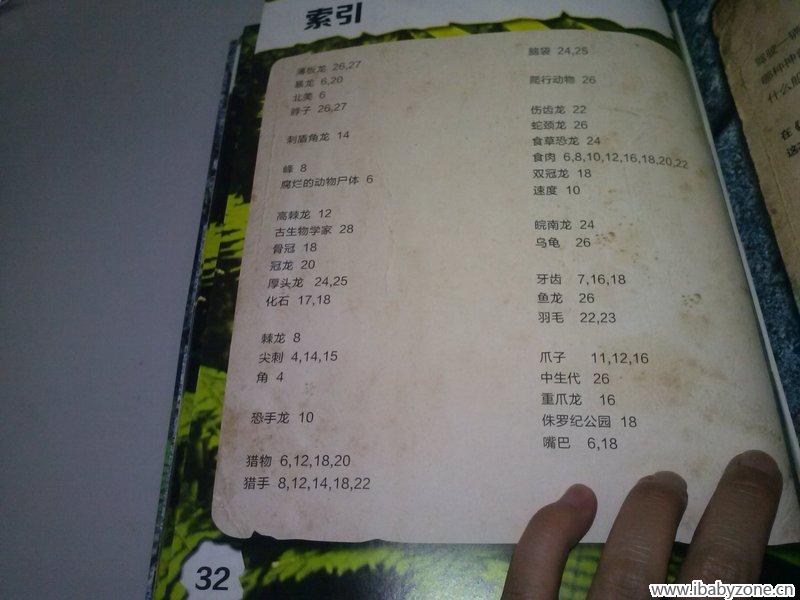 索引
薄板龙 26,27
暴龙 6,20
北美 6
脖子 26,27
刺盾角龙 14
峰 8
腐烂的动物尸体 6
高棘龙 12
古生物学家 28
骨冠 18
冠龙 20
厚头龙 24,25
化石 17,18
棘龙 8
尖刺 4,14,15
角 4
恐手龙 10
猎物 6,12,18,20
猎手 8,12,14,18,22
脑袋 24,25
爬行动物 26
伤齿龙 22
蛇颈龙 26
食草恐龙 24
食肉 6,8,10,12,16,18,20,22
双冠龙 18
速度 10
皖南龙 24
乌龟 26
牙齿 7,16,18
鱼龙 26
羽毛 22,23
爪子 11,12,16
中生代 26
重爪龙 16
侏罗纪公园 18
嘴巴 6,18
32
哪种神
什么肌
在
这
www.ibabyzone.cn